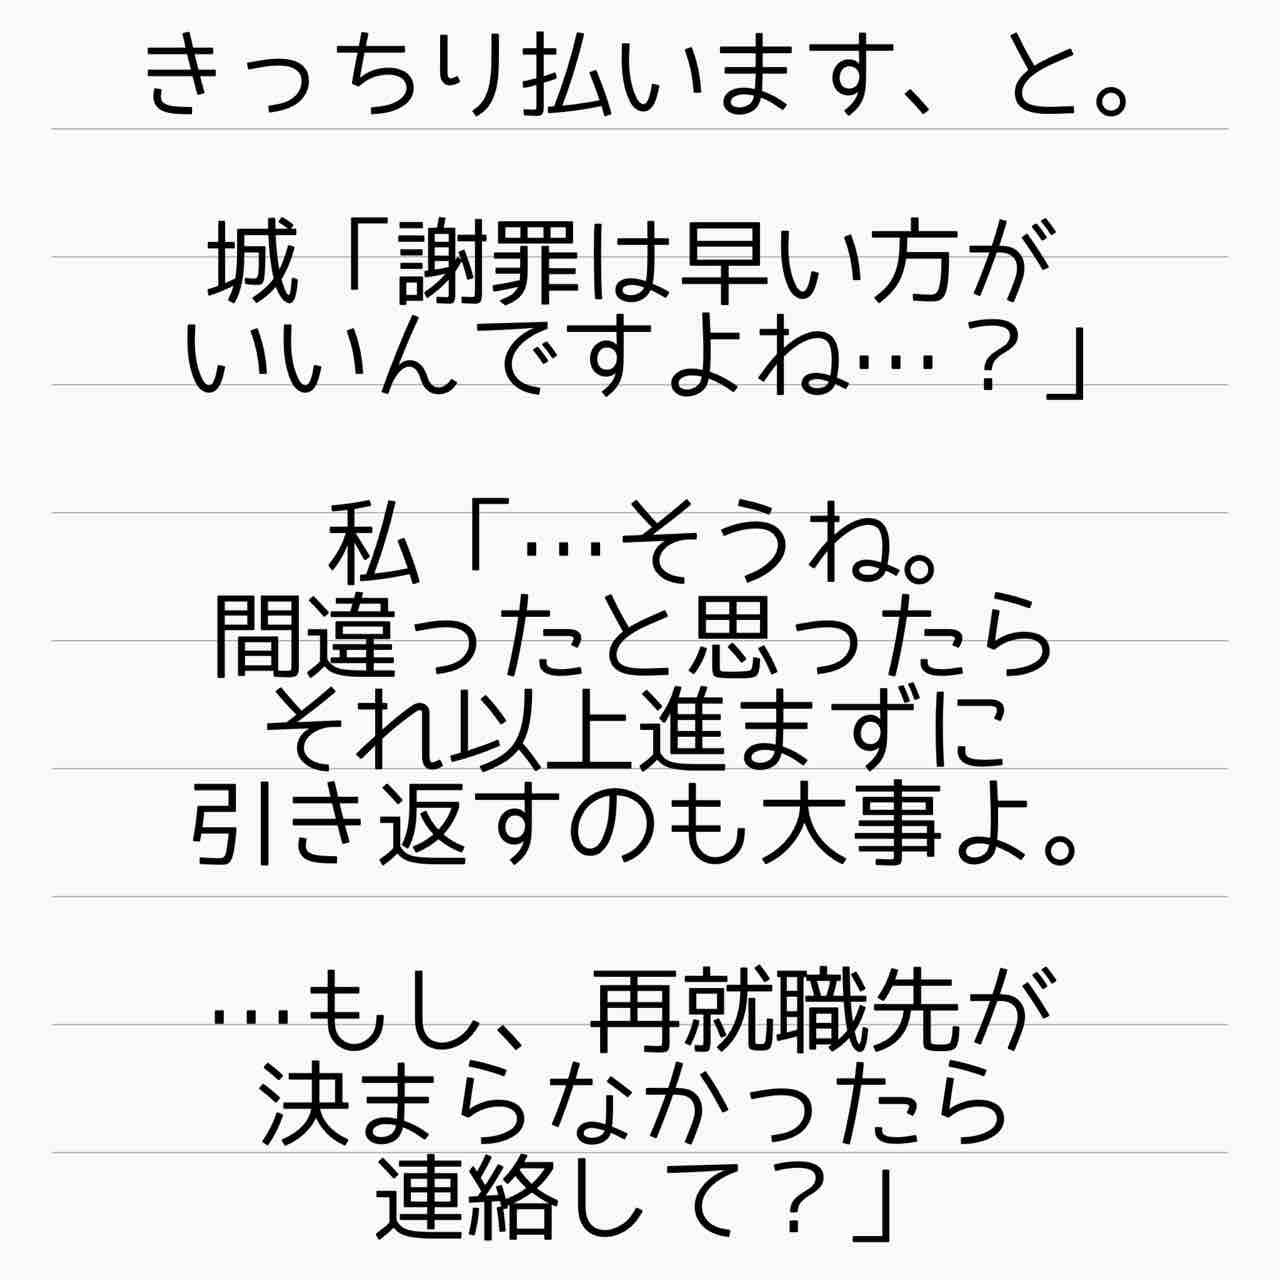 きっちり払います、と。
城「謝罪は早い方が
いいんですよね…？」
私「…そうね。
間違ったと思ったら
それ以上進まずに
引き返すのも大事よ。
…もし、再就職先が
決まらなかったら
連絡して？」